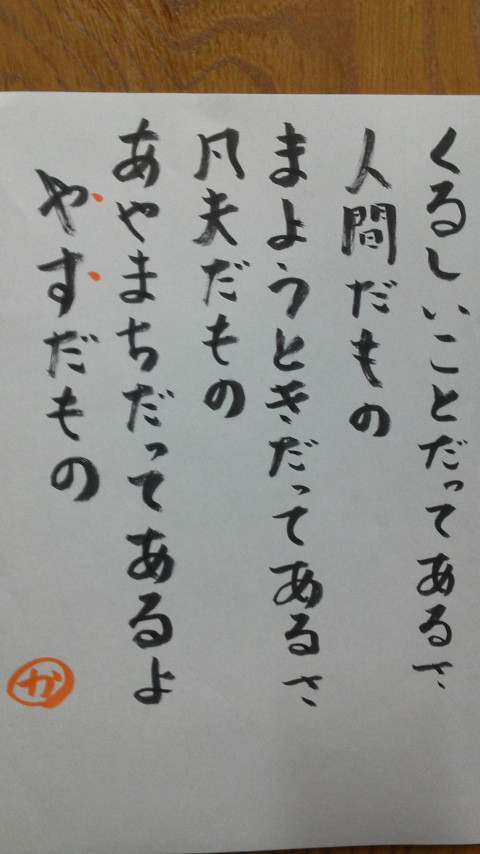 くるしいことだってあるさ
人間だもの
まようときだってあるさ
凡夫だもの
あやまちだってあるよ
やすだもの
か